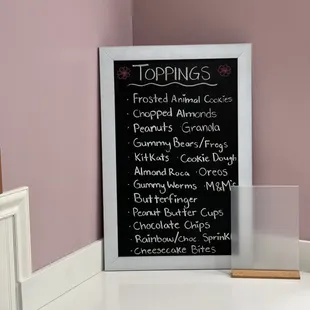 TOPPINGS
· Frosted Animal Cookies
· Chopped Almonds
· Peanuts · Granola
· Gummy Bears/Frogs
· KitKats · Cookie Dough
· Almond Roca · Oreos
· Gummy Worms · M&M's
· Butterfinger
· Peanut Butter Cups
· Chocolate Chips
· Rainbow/Choc Sprink
· Cheesecake Bites